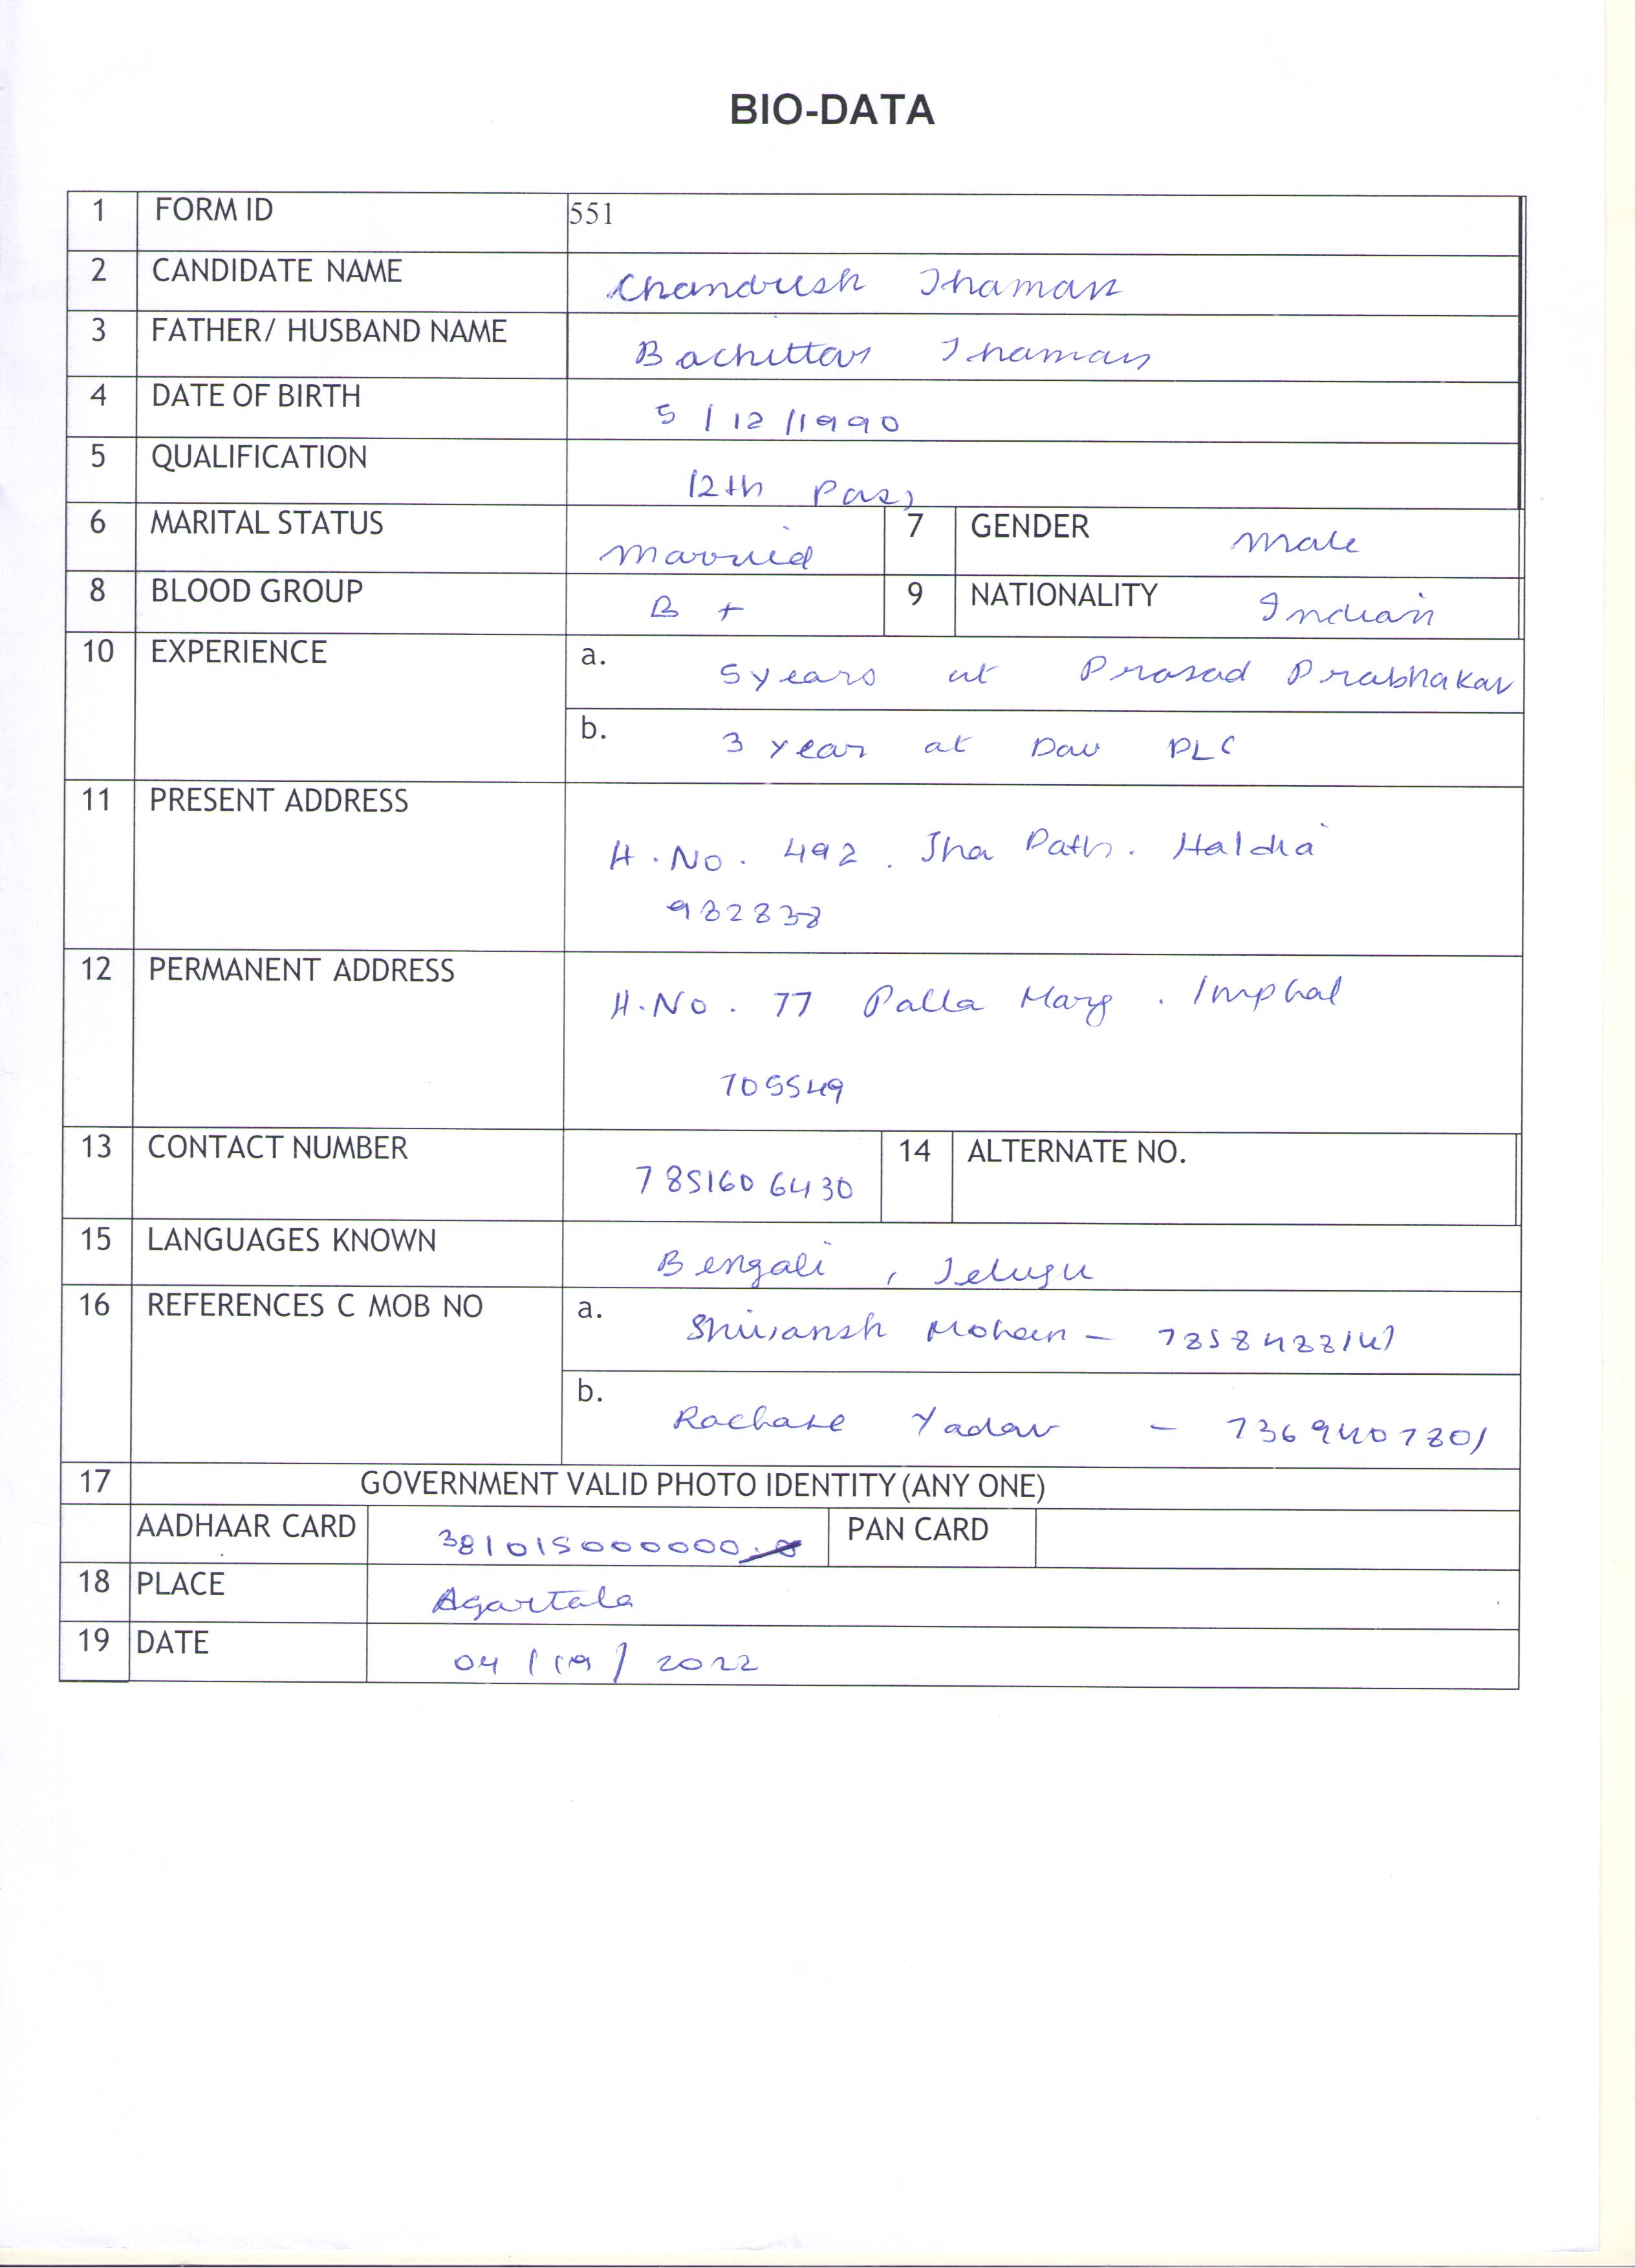 BIO-DATA
1 FORM ID 551
2 CANDIDATE NAME Chandresh Thaman
3 FATHER/ HUSBAND NAME Bachittar Thaman
4 DATE OF BIRTH 5/12/1990
5 QUALIFICATION 12th Pass
6 MARITAL STATUS Married 7 GENDER Male
8 BLOOD GROUP B + 9 NATIONALITY Indian
10 EXPERIENCE a. 5 years at Prasad Prabhakar
b. 3 year at PLC
11 PRESENT ADDRESS H.No. 492, Jha Path. Haldia
982838
12 PERMANENT ADDRESS H.No. 77 Palla Marg. Imphal
705549
13 CONTACT NUMBER 7851606430 14 ALTERNATE NO.
15 LANGUAGES KNOWN Bengali, Telugu
16 REFERENCES C MOB NO a. Shivansh -
b. Yadav - 7369407801
17 GOVERNMENT VALID PHOTO IDENTITY (ANY ONE)
AADHAAR CARD 381015000000 PAN CARD
18 PLACE Agartala
19 DATE 04/19/2022